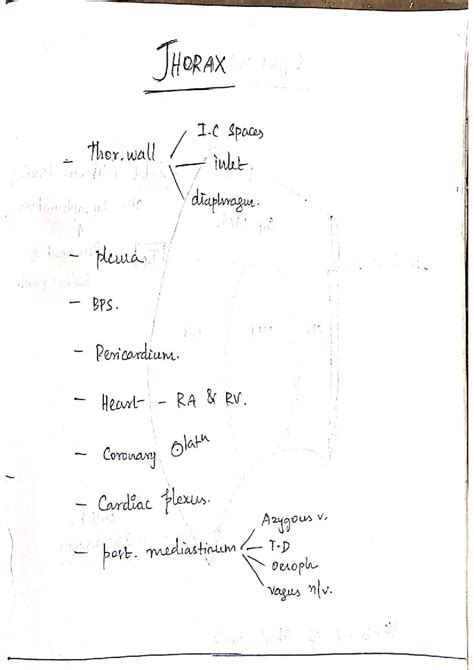 THORAX
I.C spaces
- Thor. wall - inlet
diaphragm.
- pleura
- BPS.
- Pericardium.
- Heart - RA & RV.
- Coronary
- Cardiac plexus.
Azygous v.
- post. mediastinum - T-D
Oesoph
vagus n/v.